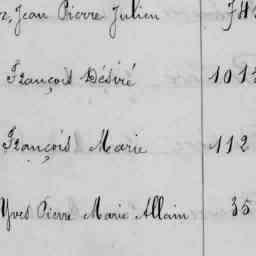 Jean Pierre Julien 74
François Désiré 101
François Marie 112
Yves Pierre Marie Allain 35